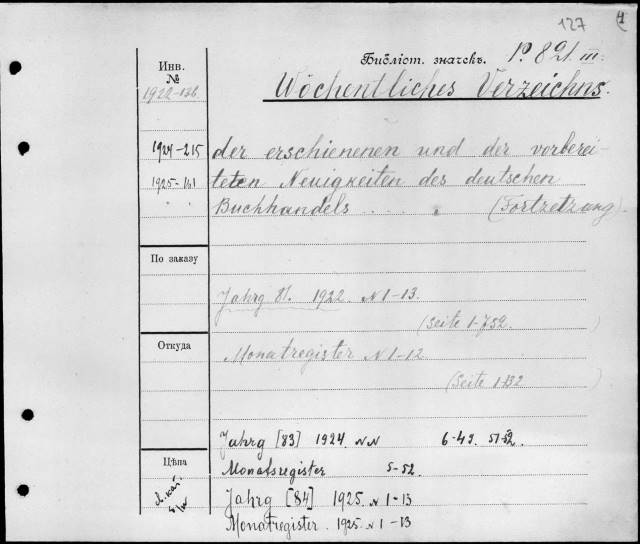 127
4
Инв.
№
Библіот. значекъ. 1º 821 III
1922-136
Wöchentliches Verzeichns.
1924-215 der erschienenen und der vorberei-
1925-141 teten Neuigkeiten des deutschen
" " Buchhandels . . . . (Fortzetzung).
По заказу
Jahrg 81. 1922. N 1-13.
(Seite 1-752. )
Откуда
Monatregister N 1-12
(Seite 1-132 )
Jahrg [83] 1924 NN 6-49. 51-52.
Цѣна
Monatsregister 5-52.
Jahrg [84] 1925. N 1-13
Monatregister. 1925. N 1-13